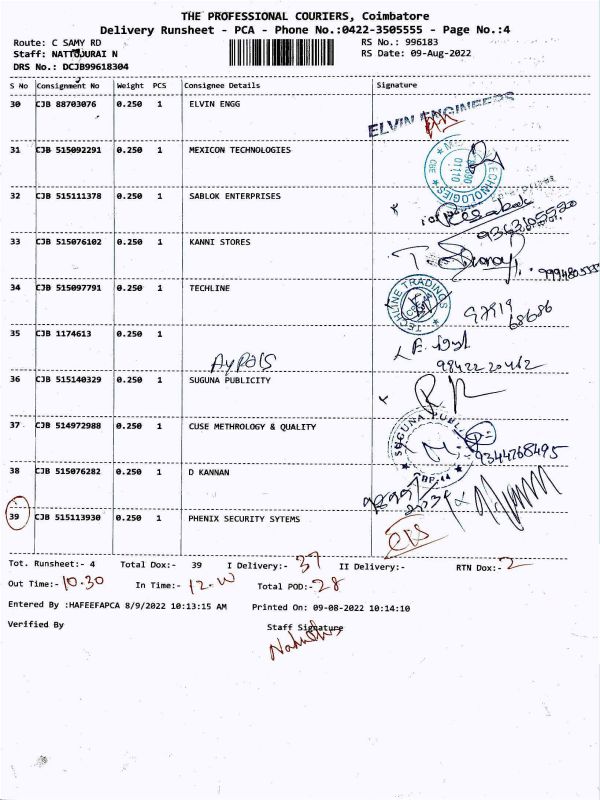 THE PROFESSIONAL COURIERS, Coimbatore
Delivery Runsheet - PCA - Phone No.:0422-3505555 - Page No.:4
Route: C SAMY RD RS No.: 996183
Staff: NATTUDURAI N RS Date: 09-Aug-2022
DRS No.: DCJB99618304
S No Consignment No Weight PCS Consignee Details Signature
30 CJB 88703076 0.250 1 ELVIN ENGG
ELVIN ENGINEERS
31 CJB 515092291 0.250 1 MEXICON TECHNOLOGIES
32 CJB 515111378 0.250 1 SABLOK ENTERPRISES
9363105520
33 CJB 515076102 0.250 1 KANNI STORES
9994805555
34 CJB 515097791 0.250 1 TECHLINE
TECHLINE TRADINGS
97919
68686
35 CJB 1174613 0.250 1
98422 20462
36 CJB 515140329 0.250 1 SUGUNA PUBLICITY
SUGUNA PUBL
37 CJB 514972988 0.250 1 CUSE METHROLOGY & QUALITY
9344768495
38 CJB 515076282 0.250 1 D KANNAN
39 CJB 515113930 0.250 1 PHENIX SECURITY SYTEMS
Tot. Runsheet:- 4 Total Dox:- 39 I Delivery:- 37 II Delivery:- RTN Dox:- 2
Out Time:- 10.30 In Time:- Total POD:- 28
Entered By :HAFEEFAPCA 8/9/2022 10:13:15 AM Printed On: 09-08-2022 10:14:10
Verified By Staff Signature